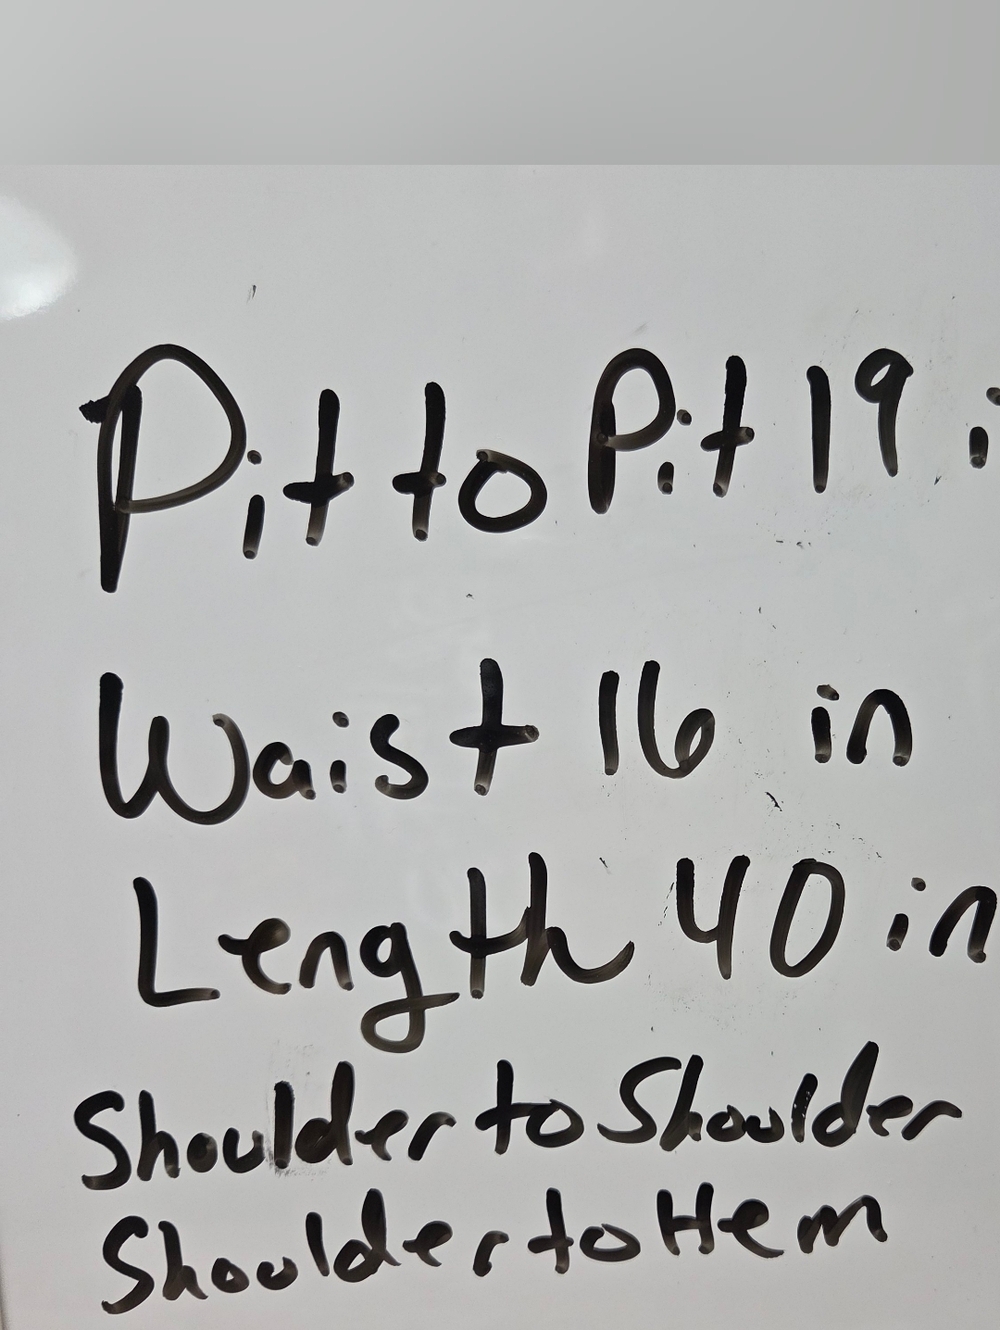 Pit to Pit 19 i
Waist 16 in
Length 40 in
Shoulder to Shoulder
Shoulder to Hem